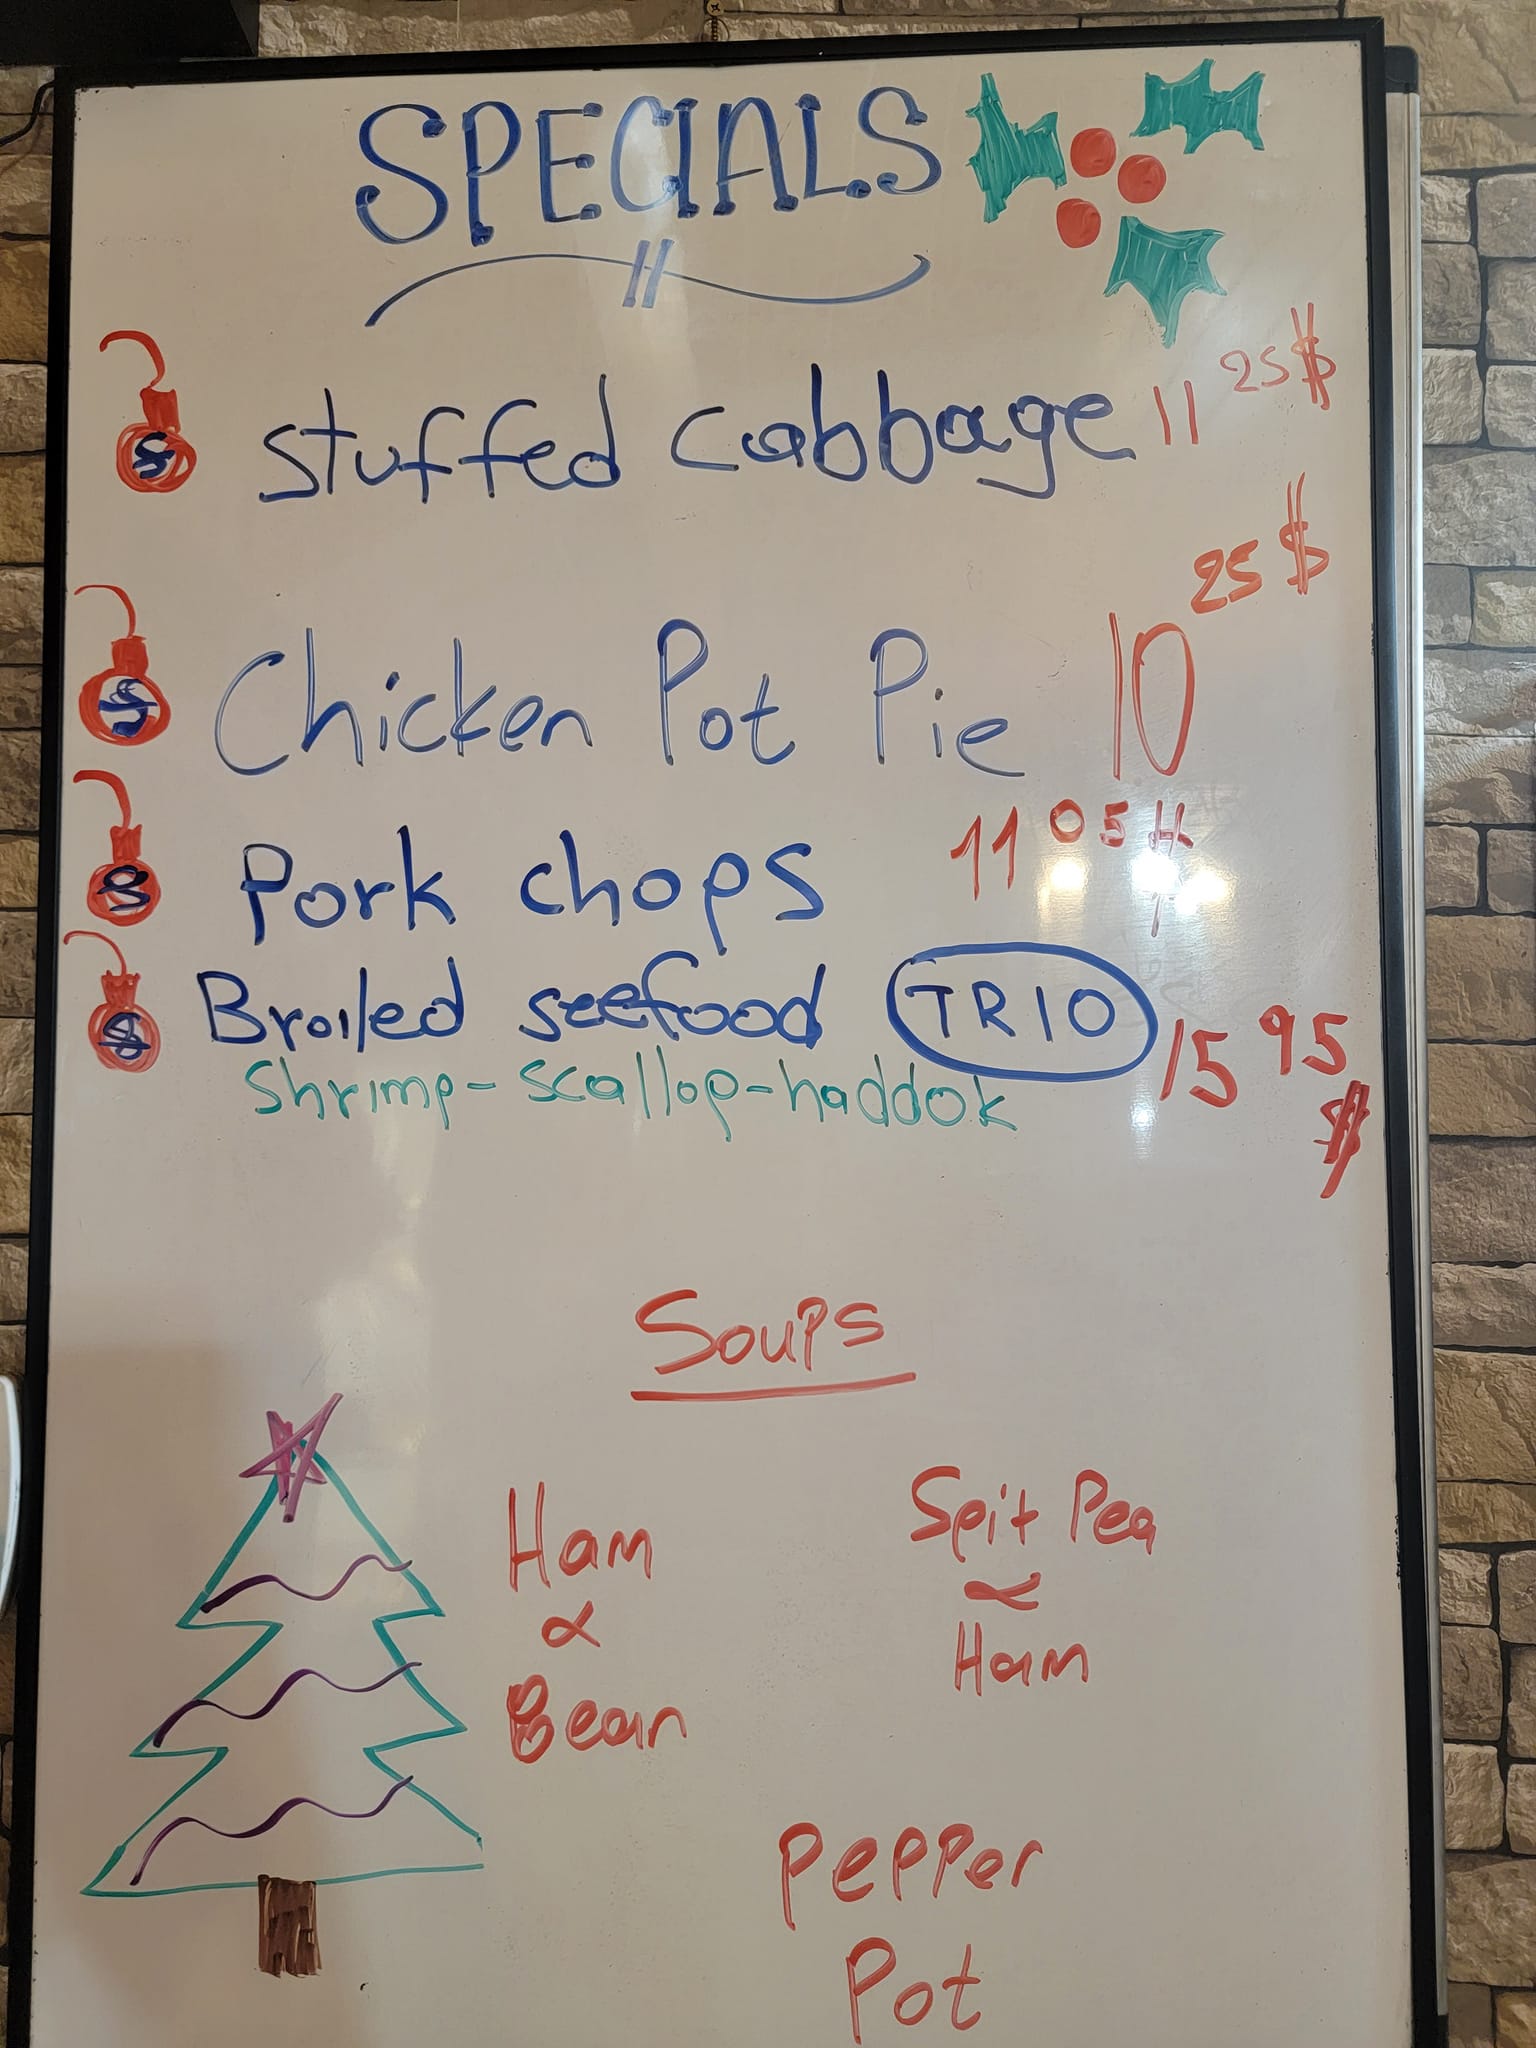 SPECIALS
S stuffed cabbage 11 25 $
S Chicken Pot Pie 10 25 $
S Pork chops 11 05 $
S Broiled seefood TRIO 15 95 $
shrimp-scallop-haddok
Soups
Ham
&
Bean
Spit Pea
&
Ham
PePPer
Pot